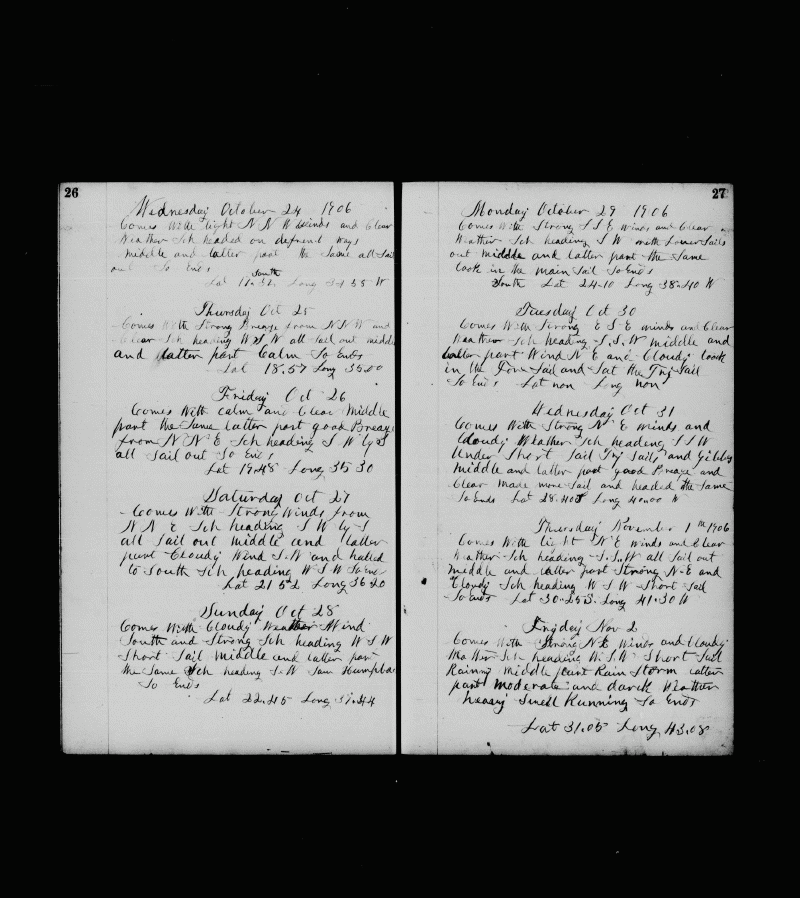 26
Wednesday October 24 1906
Comes With light N N W Winds and Clear
Weather Sch headed on defrent ways
Middle and latter part the Same all Sail
out So Ends
South
Lat Long W
Thursday Oct 25
Comes With Strong Breaze from N N W and
Clear Sch heading W S W all Sail out middle
and latter part Calm So Ends
Lat 18.57 Long 35.00
Friday Oct 26
Comes With calm and Clear Middle
part the Same latter part good Breaze
from N N E Sch heading S W by S
all Sail out So Ends
Lat 19.48 Long 35 30
Saturday Oct 27
Comes With Strong Winds from
N N E Sch heading S W by S
all Sail out Middle and latter
part Cloudy Wind S.W and halled
to South Sch heading W S W So Ends
Lat 21 52 Long 36 20
Sunday Oct 28
Comes With Cloudy Weather Wind
South and Strong Sch heading W S W
Short Sail Middle and latter part
the Same Sch heading S.W Saw Humpbac
So Ends
Lat 22.45 Long 37.44
27
Monday October 29 1906
Comes With Strong S S E Winds and Clear
Weather Sch heading S W with Lower Sails
out middle and latter part the Same
took in the main Sail So Ends
South Lat 24-10 Long 38-40 W
Tuesday Oct 30
Comes With Strong E S E winds and Clear
Weather Sch heading S.S.W middle and
latter part Wind N E and Cloudy took
in the Fore Sail and Sat the Try Sail
So Ends Lat non Long non
Wednesday Oct 31
Comes With Strong N E Winds and
Cloudy Weather Sch heading S S W
Under Short Sail Try Sails and Gibbs
Middle and latter part good Breaze and
Clear made more Sail and headed the Same
So Ends Lat 28.40 S Long 40.00 W
Thursday November 1th 1906
Comes With light N E Winds and Clear
Weather Sch heading S.S.W all Sail out
Middle and latter part Strong N-E and
Cloudy Sch heading W S W Short Sail
So Ends Lat 30.25 S. Long 41.30 W
Friday Nov 2
Comes With Strong N E Winds and Cloudy
Weather Sch heading W.S.W Short Sail
Rainny Middle part Rain Storm latter
part moderate and darck Weather
heavy Swell Running So Ends
Lat 31.05 Long 43.08